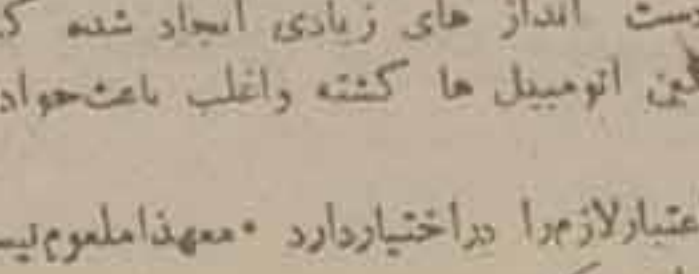 دست انداز های زیادی ایجاد شده که
اتومبیل ها کشته واغلب باعث حواد
عتبارلازمرا دراختیاردارد •معهذاملعوم نیس